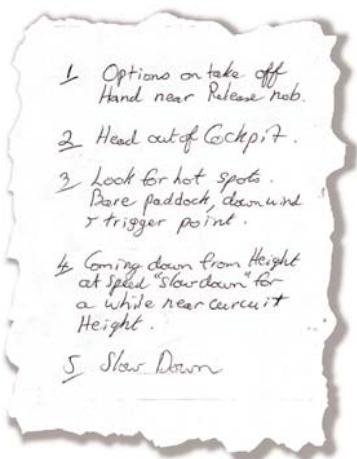 1 Options on take off
Hand near Release nob.
2 Head out of Cockpit.
3 Look for hot spots.
Bare paddock, downwind
& trigger point.
4 Coming down from Height
at speed "slow down" for
a while near curcuit
Height.
5 Slow Down